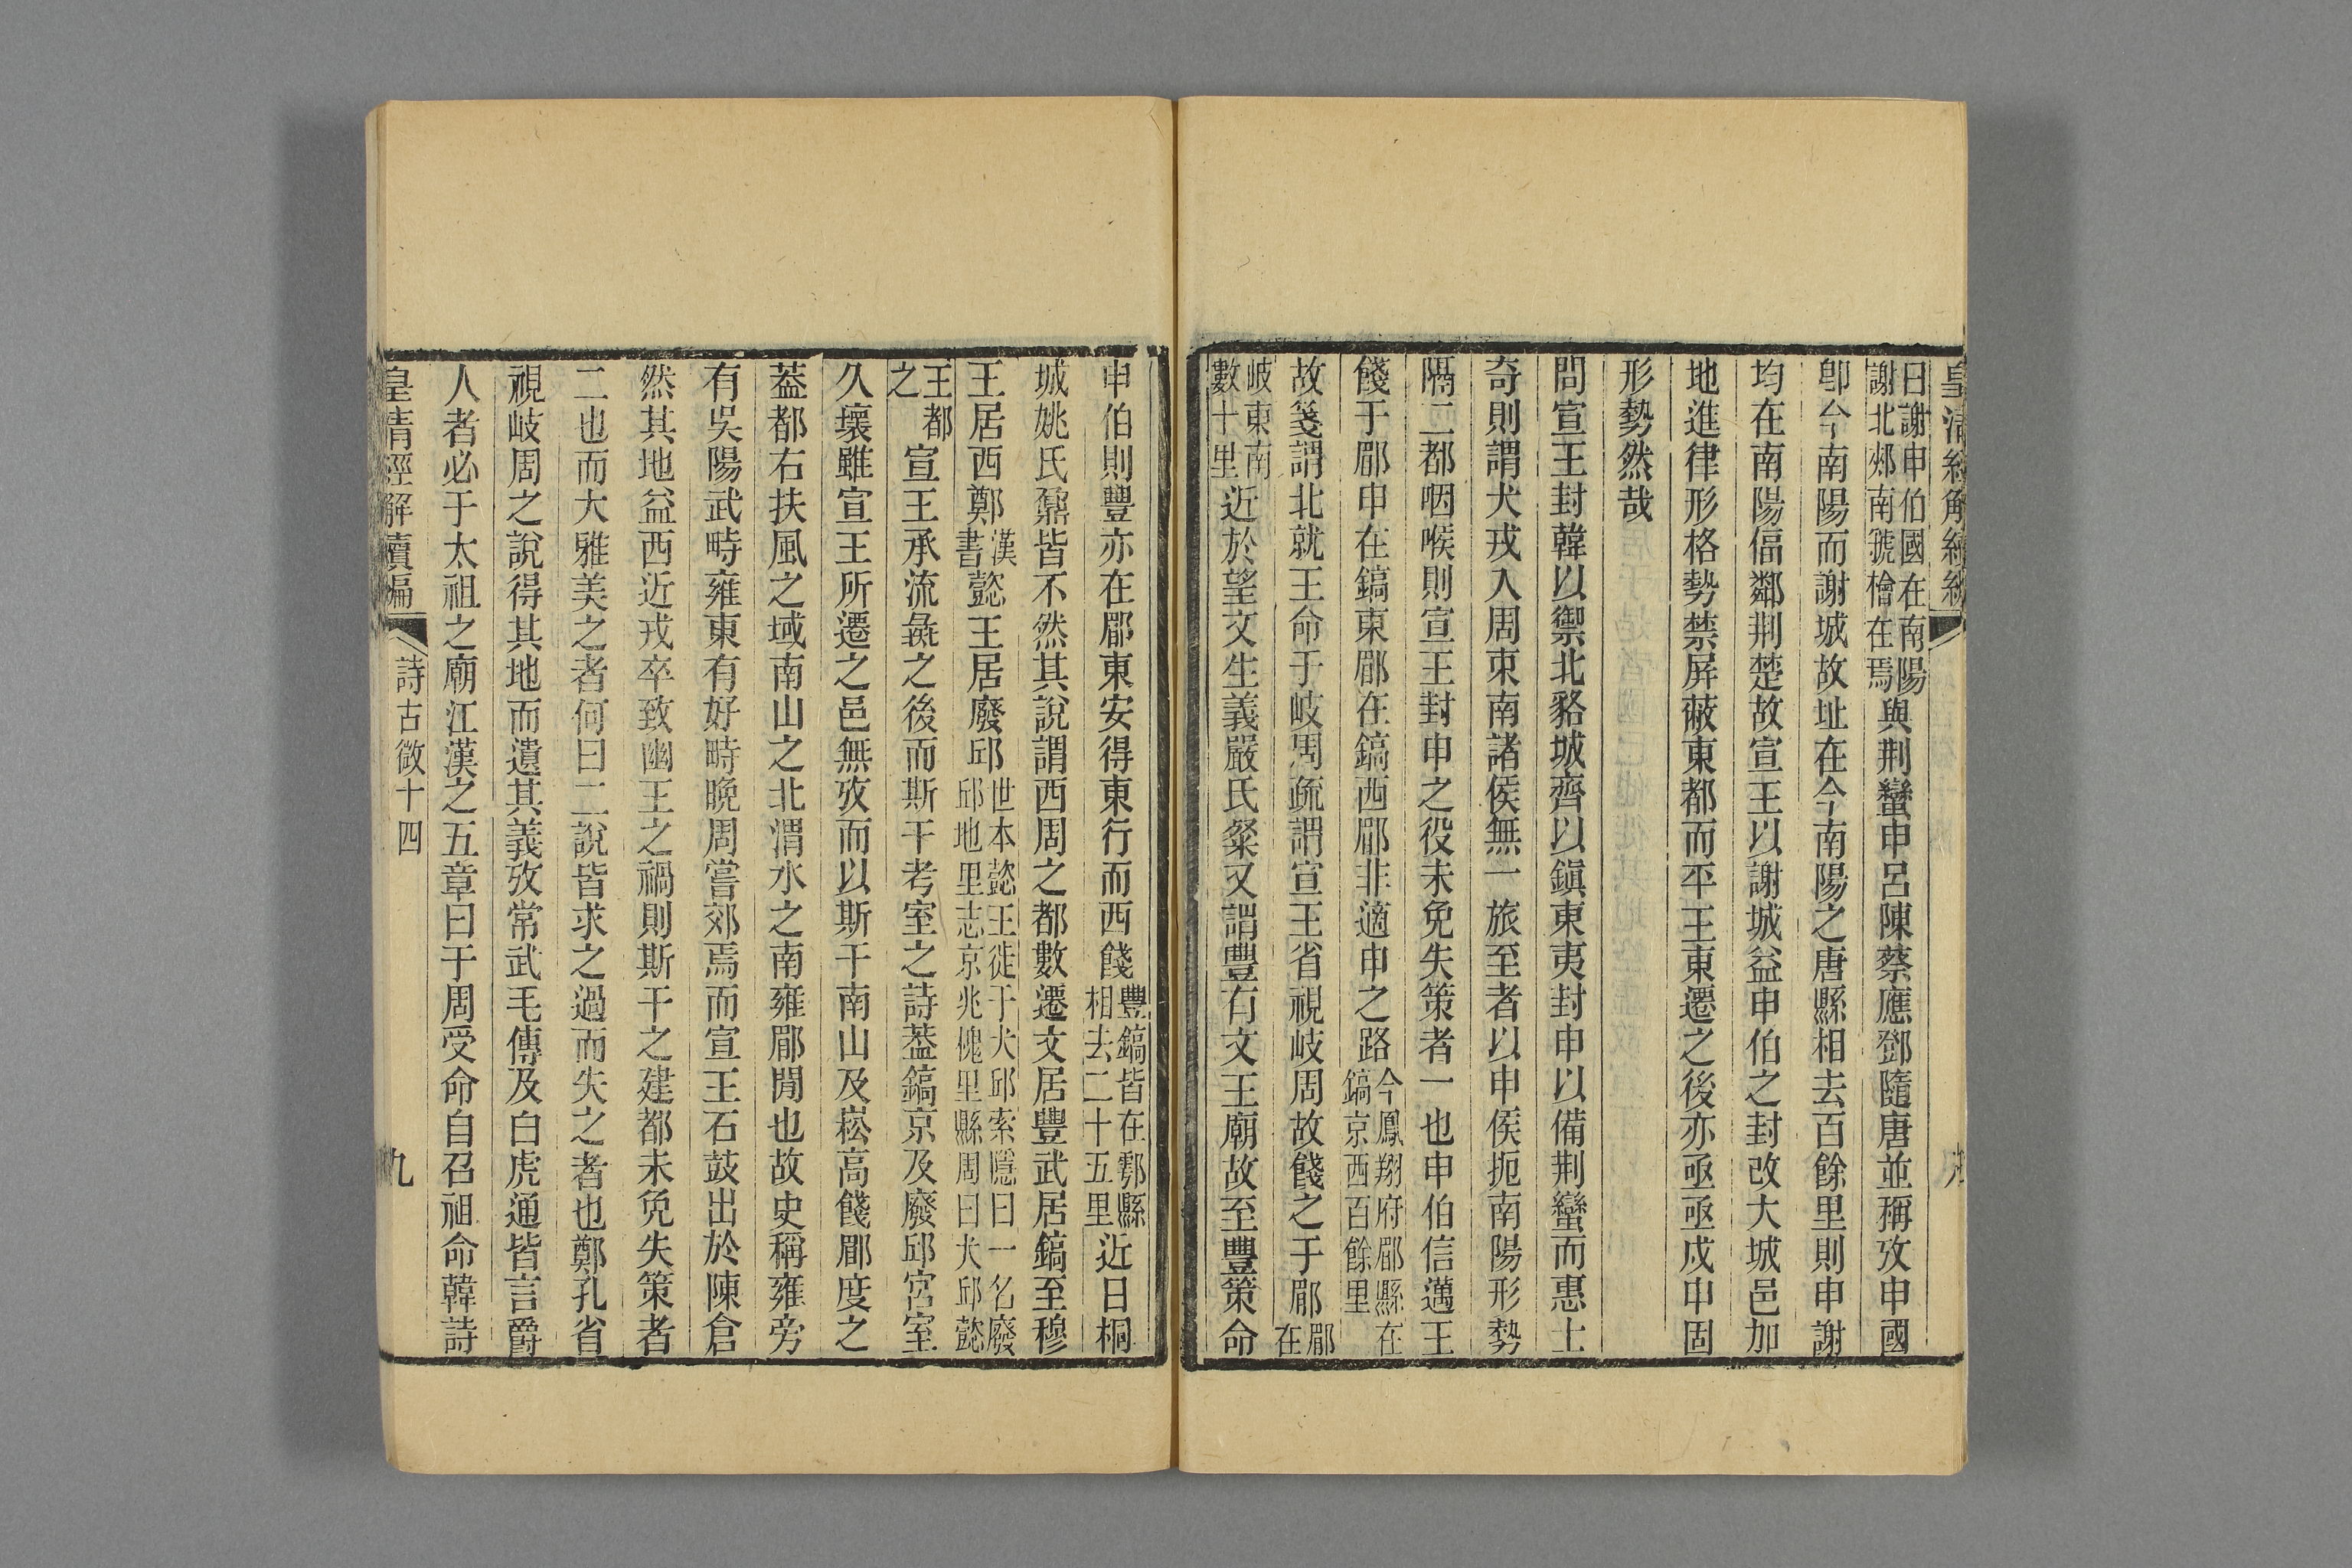 皇清經解續編
曰謝申伯國在南陽
謝北郟南虢檜在焉與荆蠻申呂陳蔡應鄧隨唐並稱攷申國
卽今南陽而謝城故址在今南陽之唐縣相去百餘里則申謝
均在南陽偪鄰荆楚故宣王以謝城益申伯之封改大城邑加
地進律形格勢禁屏蔽東都而平王東遷之後亦亟亟戍申固
形勢然哉
問宣王封韓以禦北貉城齊以鎭東夷封申以備荆蠻而惠士
奇則謂犬戎入周東南諸侯無一旅至者以申侯扼南陽形勢
隔二都咽喉則宣王封申之役未免失策者一也申伯信邁王
餞于郿申在鎬東郿在鎬西郿非適申之路今鳳翔府郿縣在
鎬京西百餘里
故箋謂北就王命于岐周疏謂宣王省視岐周故餞之于郿郿
在
岐東南
數十里近於望文生義嚴氏粲又謂豐有文王廟故至豐策命
申伯則豐亦在郿東安得東行而西餞豐鎬皆在鄠縣
相去二十五里近日桐
城姚氏鼐皆不然其說謂西周之都數遷文居豐武居鎬至穆
王居西鄭漢
書懿王居廢邱世本懿王徙于犬邱索隱曰一名廢
邱地里志京兆槐里縣周曰犬邱懿
王都
之宣王承流彘之後而斯干考室之詩葢鎬京及廢邱宮室
久壞雖宣王所遷之邑無攷而以斯干南山及崧高餞郿度之
葢都右扶風之域南山之北渭水之南雍郿閒也故史稱雍旁
有吳陽武畤雍東有好畤晚周嘗郊焉而宣王石鼓出於陳倉
然其地益西近戎卒致幽王之禍則斯干之建都未免失策者
二也而大雅美之者何曰二說皆求之過而失之者也鄭孔省
視岐周之說得其地而遺其義攷常武毛傳及白虎通皆言爵
人者必于太祖之廟江漢之五章曰于周受命自召祖命韓詩
皇清經解續編
詩古微十四
九